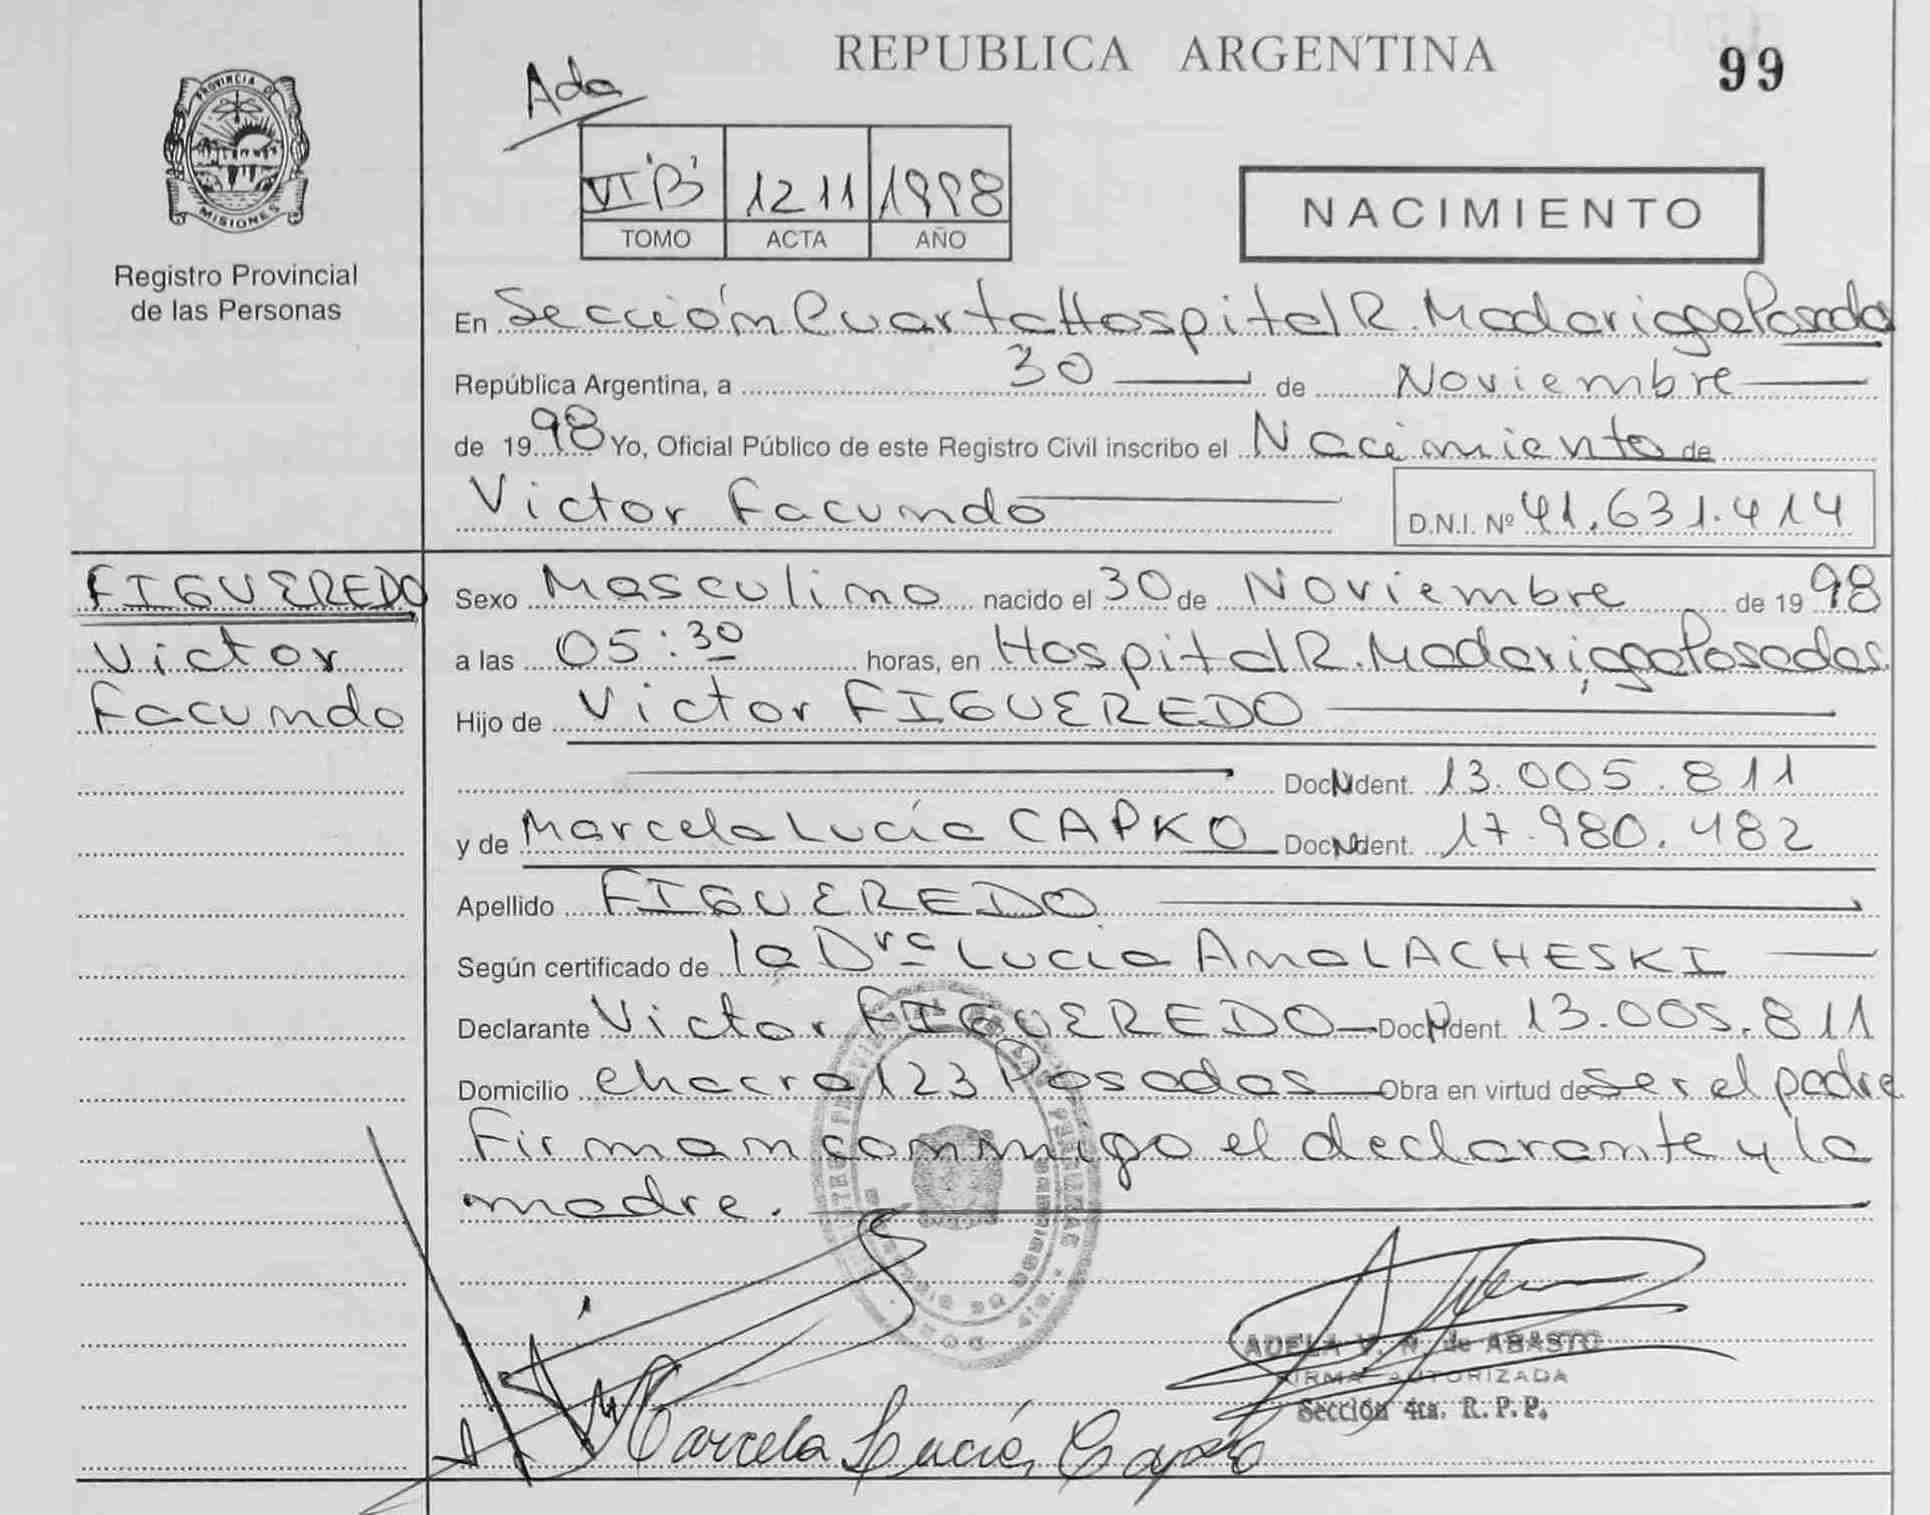 REPUBLICA ARGENTINA
99
Ada
PROVINCIA DE
MISIONES
VI "B" 1211 1998
TOMO ACTA AÑO
NACIMIENTO
Registro Provincial
de las Personas
En Sección Cuarta Hospital R. Madariaga Posadas
República Argentina, a 30 de Noviembre
de 1998 Yo, Oficial Público de este Registro Civil inscribo el Nacimiento de
Victor Facundo
D.N.I. Nº 41.631.414
FIGUEREDO
Victor
Facundo
Sexo Masculino nacido el 30 de Noviembre de 1998
a las 05:30 horas, en Hospital R. Madariaga Posadas
Hijo de Victor FIGUEREDO
Doc. Ident. 13.005.811
y de Marcela Lucía CAPKO Doc. Ident. 17.980.482
Apellido FIGUEREDO
Según certificado de la Dra Lucia Ana LACHESKI
Declarante Victor FIGUEREDO Doc. Ident. 13.005.811
Domicilio chacra 123 Posadas Obra en virtud de ser el padre
Firman conmigo el declarante y la
madre.
ADELA V. N. de ABASTO
FIRMA AUTORIZADA
Sección 4ta. R.P.P.
Marcela Lucía Capko